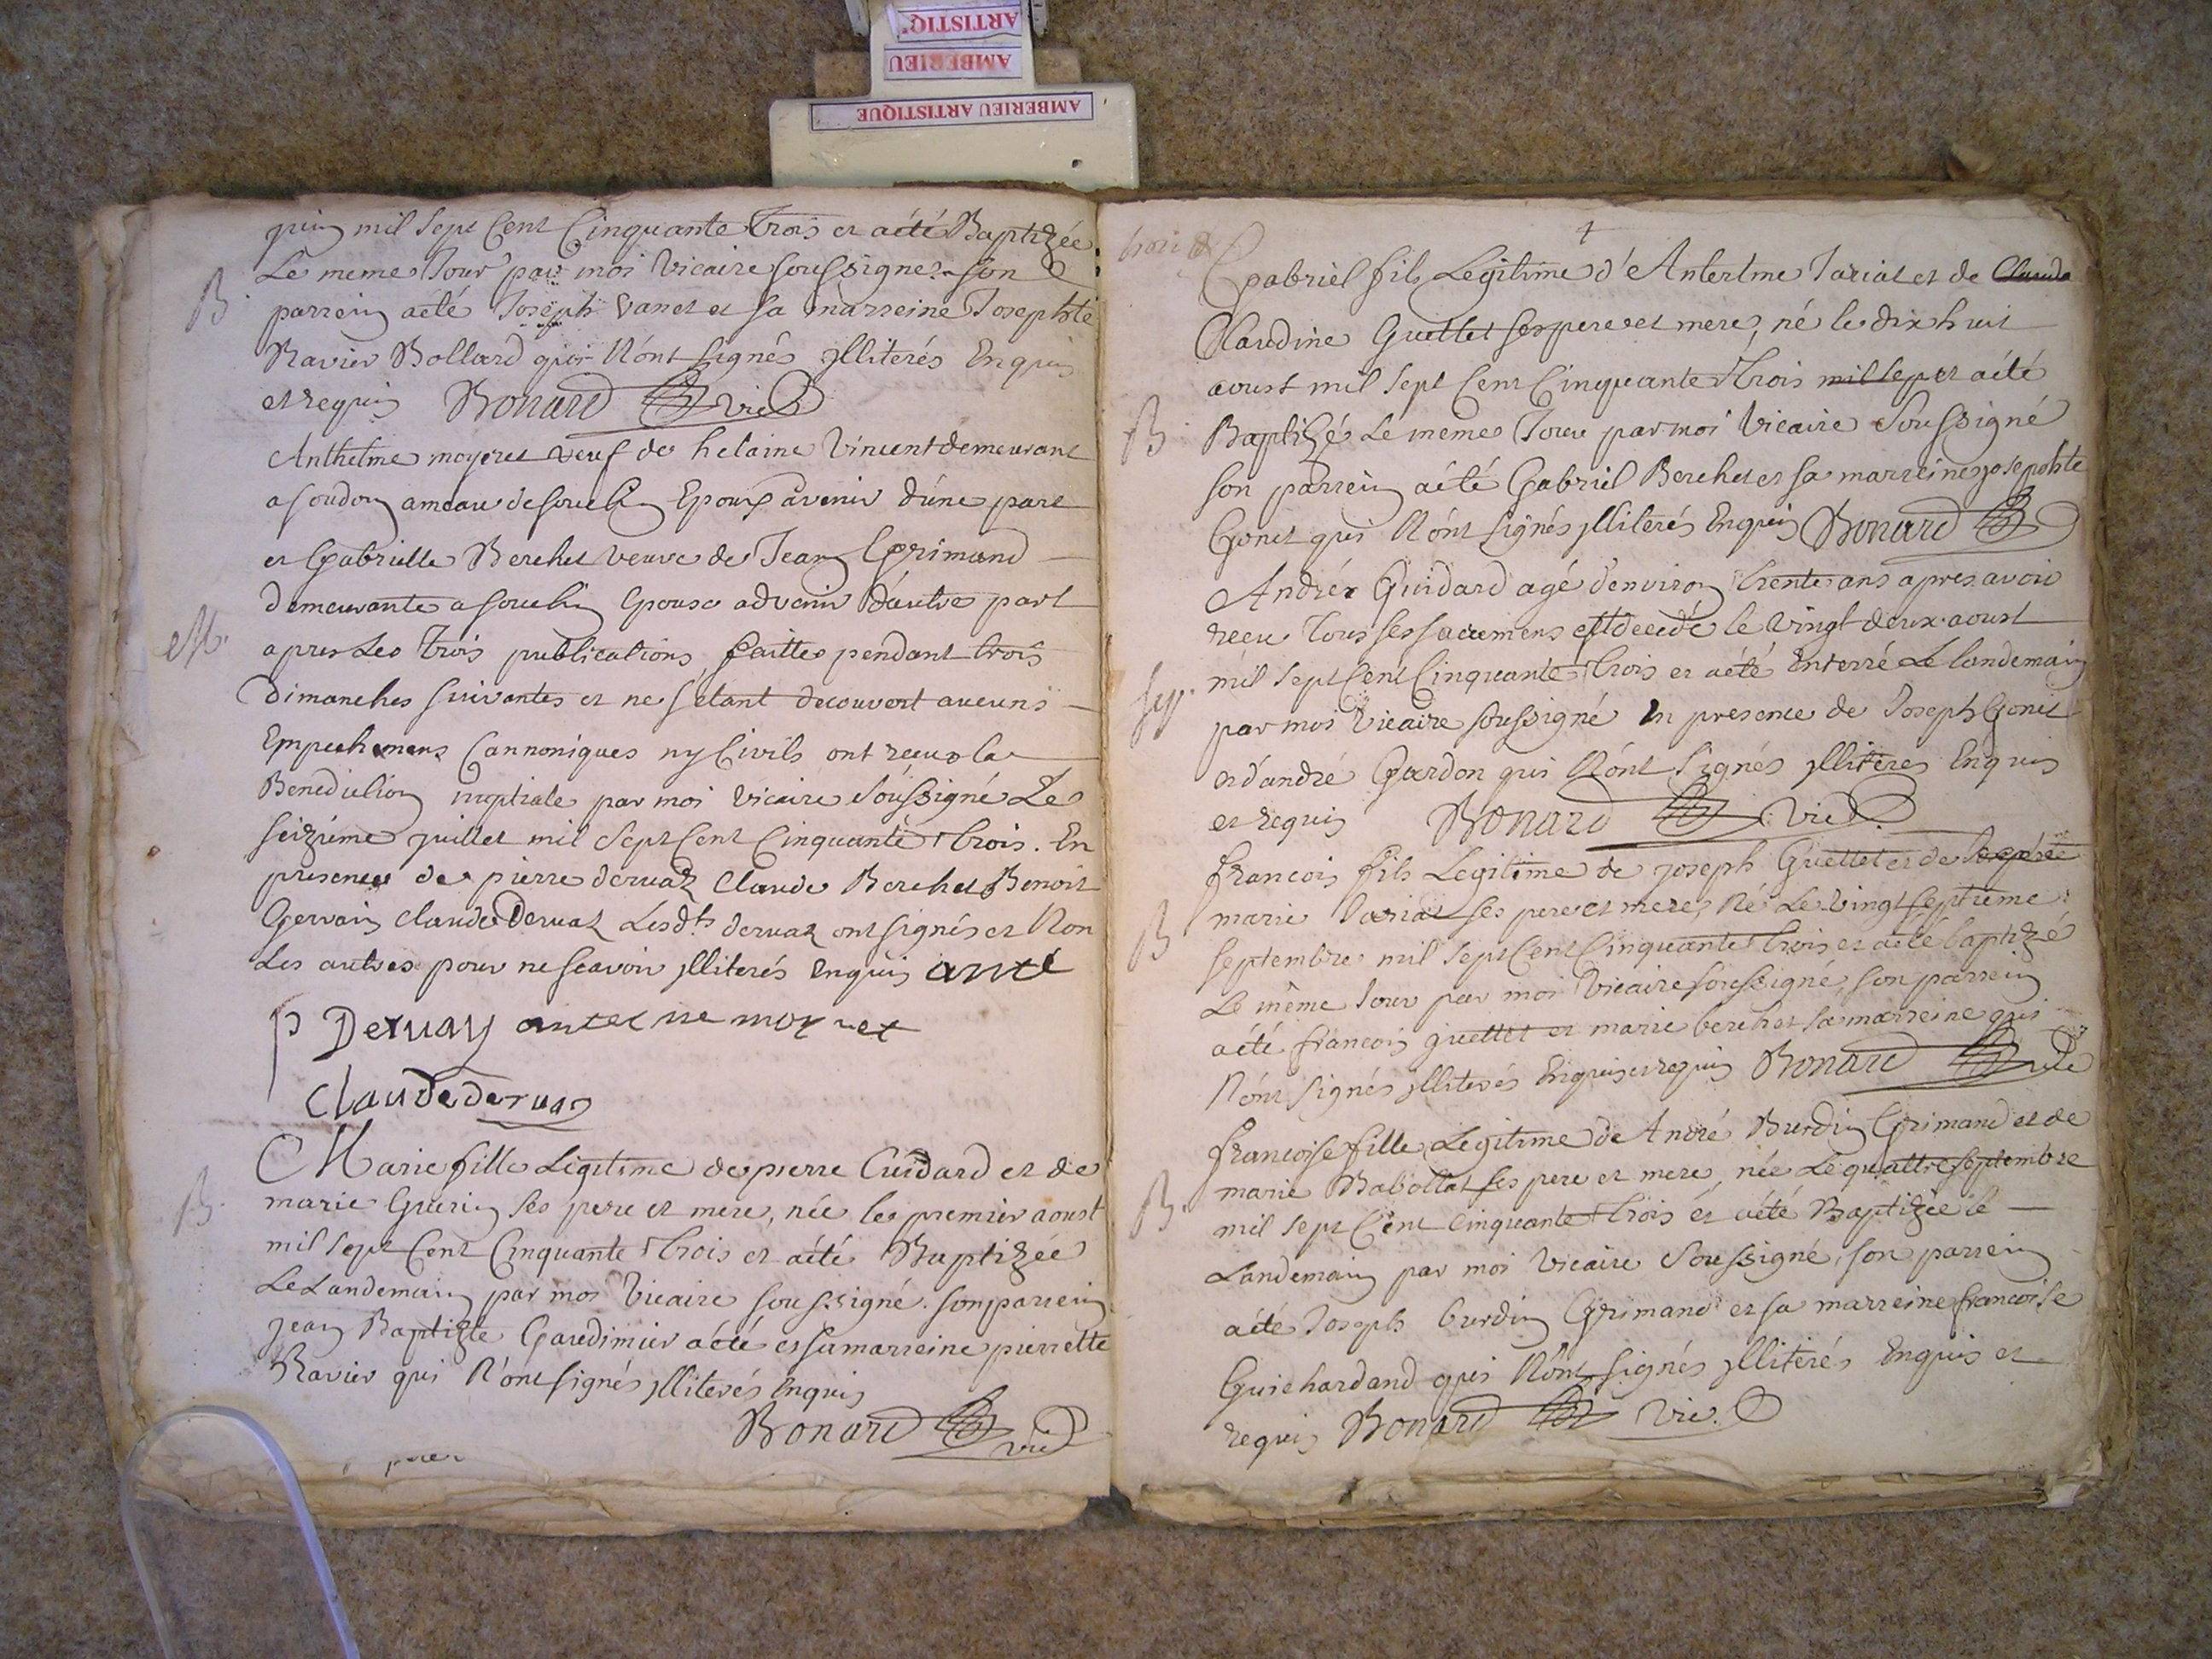 ARTISTIQ
AMBERIEU
AMBERIEU ARTISTIQUE
juin mil sept Cent Cinquante Trois et aété Baptizée
Le meme Jour par moi Vicaire soussigné son
B.
parrein aété Joseph Vanet et sa marreine Josephte
Ravier Bollard qui N'ont signés jlliterés Enquis
et requis Bonard vic
Anthelme moyret veuf de helaine Vincent demeurant
a soudon ameau de souclin Epoux avenir d'une part
et Gabrielle Berchet veuve de Jean Grimand
demeurante a souclin Epouse advenir d'autre part
M.
apres Les Trois publications faittes pendant trois
Dimanches suivantes et ne setant decouvert aucuns
Empechemens Cannoniques ny Civils ont recu la
Benediction nuptiale par moi Vicaire Soussigné Le
seizième juillet mil Sept Cent Cinquante trois. En
presence de pierre dervaz Claude Berchet Benoit
Gervain Claude Dervaz Lesdts dervaz ont signés et Non
Les autres pour ne scavoir jlliterés Enquis ante
P Dervay antelme moyret
Claude dervaz
Marie fille Legitime de pierre Cuidard et de
B.
marie Guerin ses pere et mere, née le premier aoust
mil sept Cent Cinquante trois et aété Baptizée
Le Landemain par moi Vicaire soussigné. son parrein
jean Baptizte Gaudimier aété et sa marreine pierrette
Ravier qui N'ont signés jlliterés Enquis
Bonard vic
trois
Gabriel fils Legitime d'Antertme Tariat et de Clauda
Claudine Guettet ses pere et mere, né le dix huit
aoust mil sept Cent Cinquante Trois mil sep et aété
B.
Baptizé Le meme Jour par moi Vicaire Soussigné
son parrein aété Gabriel Berchet et sa marreine josephte
Gonet qui N'ont signés jlliterés Enquis Bonard
André Guidard agé d'environ trente ans apres avoir
recu Tous ses sacremens est decedé le vingt deux aoust
mil sept Cent Cinquante Trois et aété Enterré Le landemain
sep.
par moi Vicaire soussigné En presence de Joseph Gonet
et d'andré Gardon qui N'ont signés jlliteres Enquis
et requis Bonard vic.
francois fils Legitime de joseph Guettet et de
marie Tariat ses pere et mere, Né Le vingt septieme
B
septembre mil sept Cent Cinquante trois et aété baptizé
Le même Jour par moi Vicaire soussigné, son parrein
aété francois guettet et marie berchet sa marreine qui
N'ont signés jlliterés Enquis et requis Bonard vic
francoise fille Legitime de André Burdin Grimand et de
marie Babollat ses pere et mere, née Le quattre septembre
B.
mil sept Cent cinquante trois et aété Baptizée le
Landemain par moi Vicaire Soussigné, son parrein
aété Joseph burdin Grimand et sa marreine francoise
Guichardand qui N'ont signés jlliterés Enquis et
requis Bonard vic.